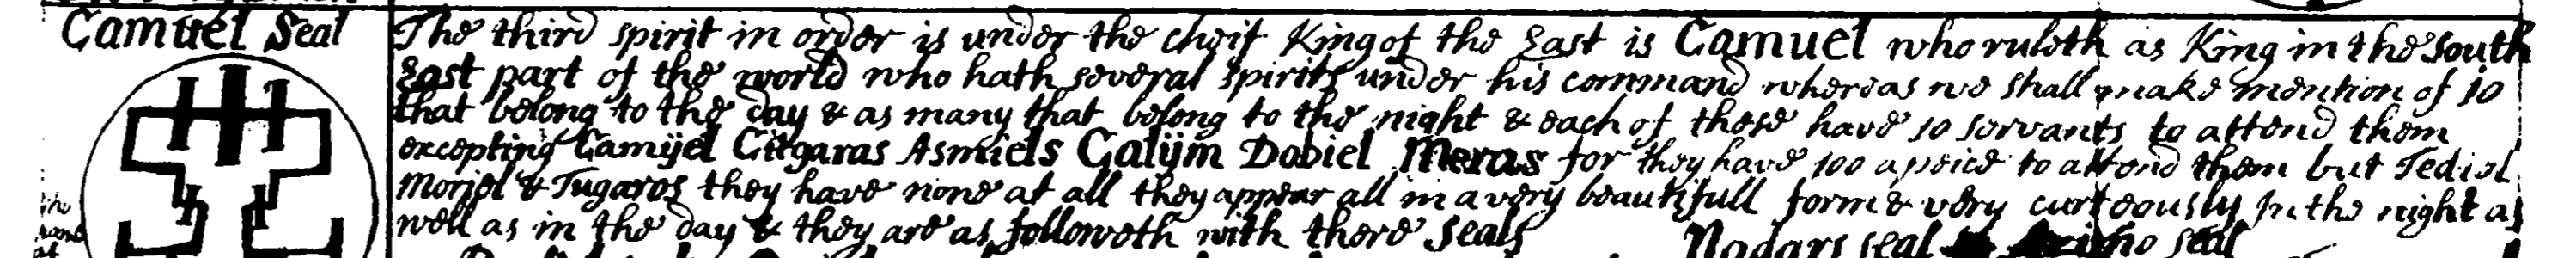 Camuel Seal
The third spirit in order is under the cheif King of the East is Camuel who ruleth as King in the South
East part of the world who hath several spirits under his command whereas we shall make mention of 10
that belong to the day & as many that belong to the night & each of these have 10 servants to attend them
excepting Camyel Citgaras Asmiels Calym Dobiel Meras for they have 100 apeice to attend them but Tediel
Moriel & Tugaros they have none at all they appear all in a very beautifull form & very curteously In the night as
well as in the day & they are as followeth with there Seals
Nodars seal seal